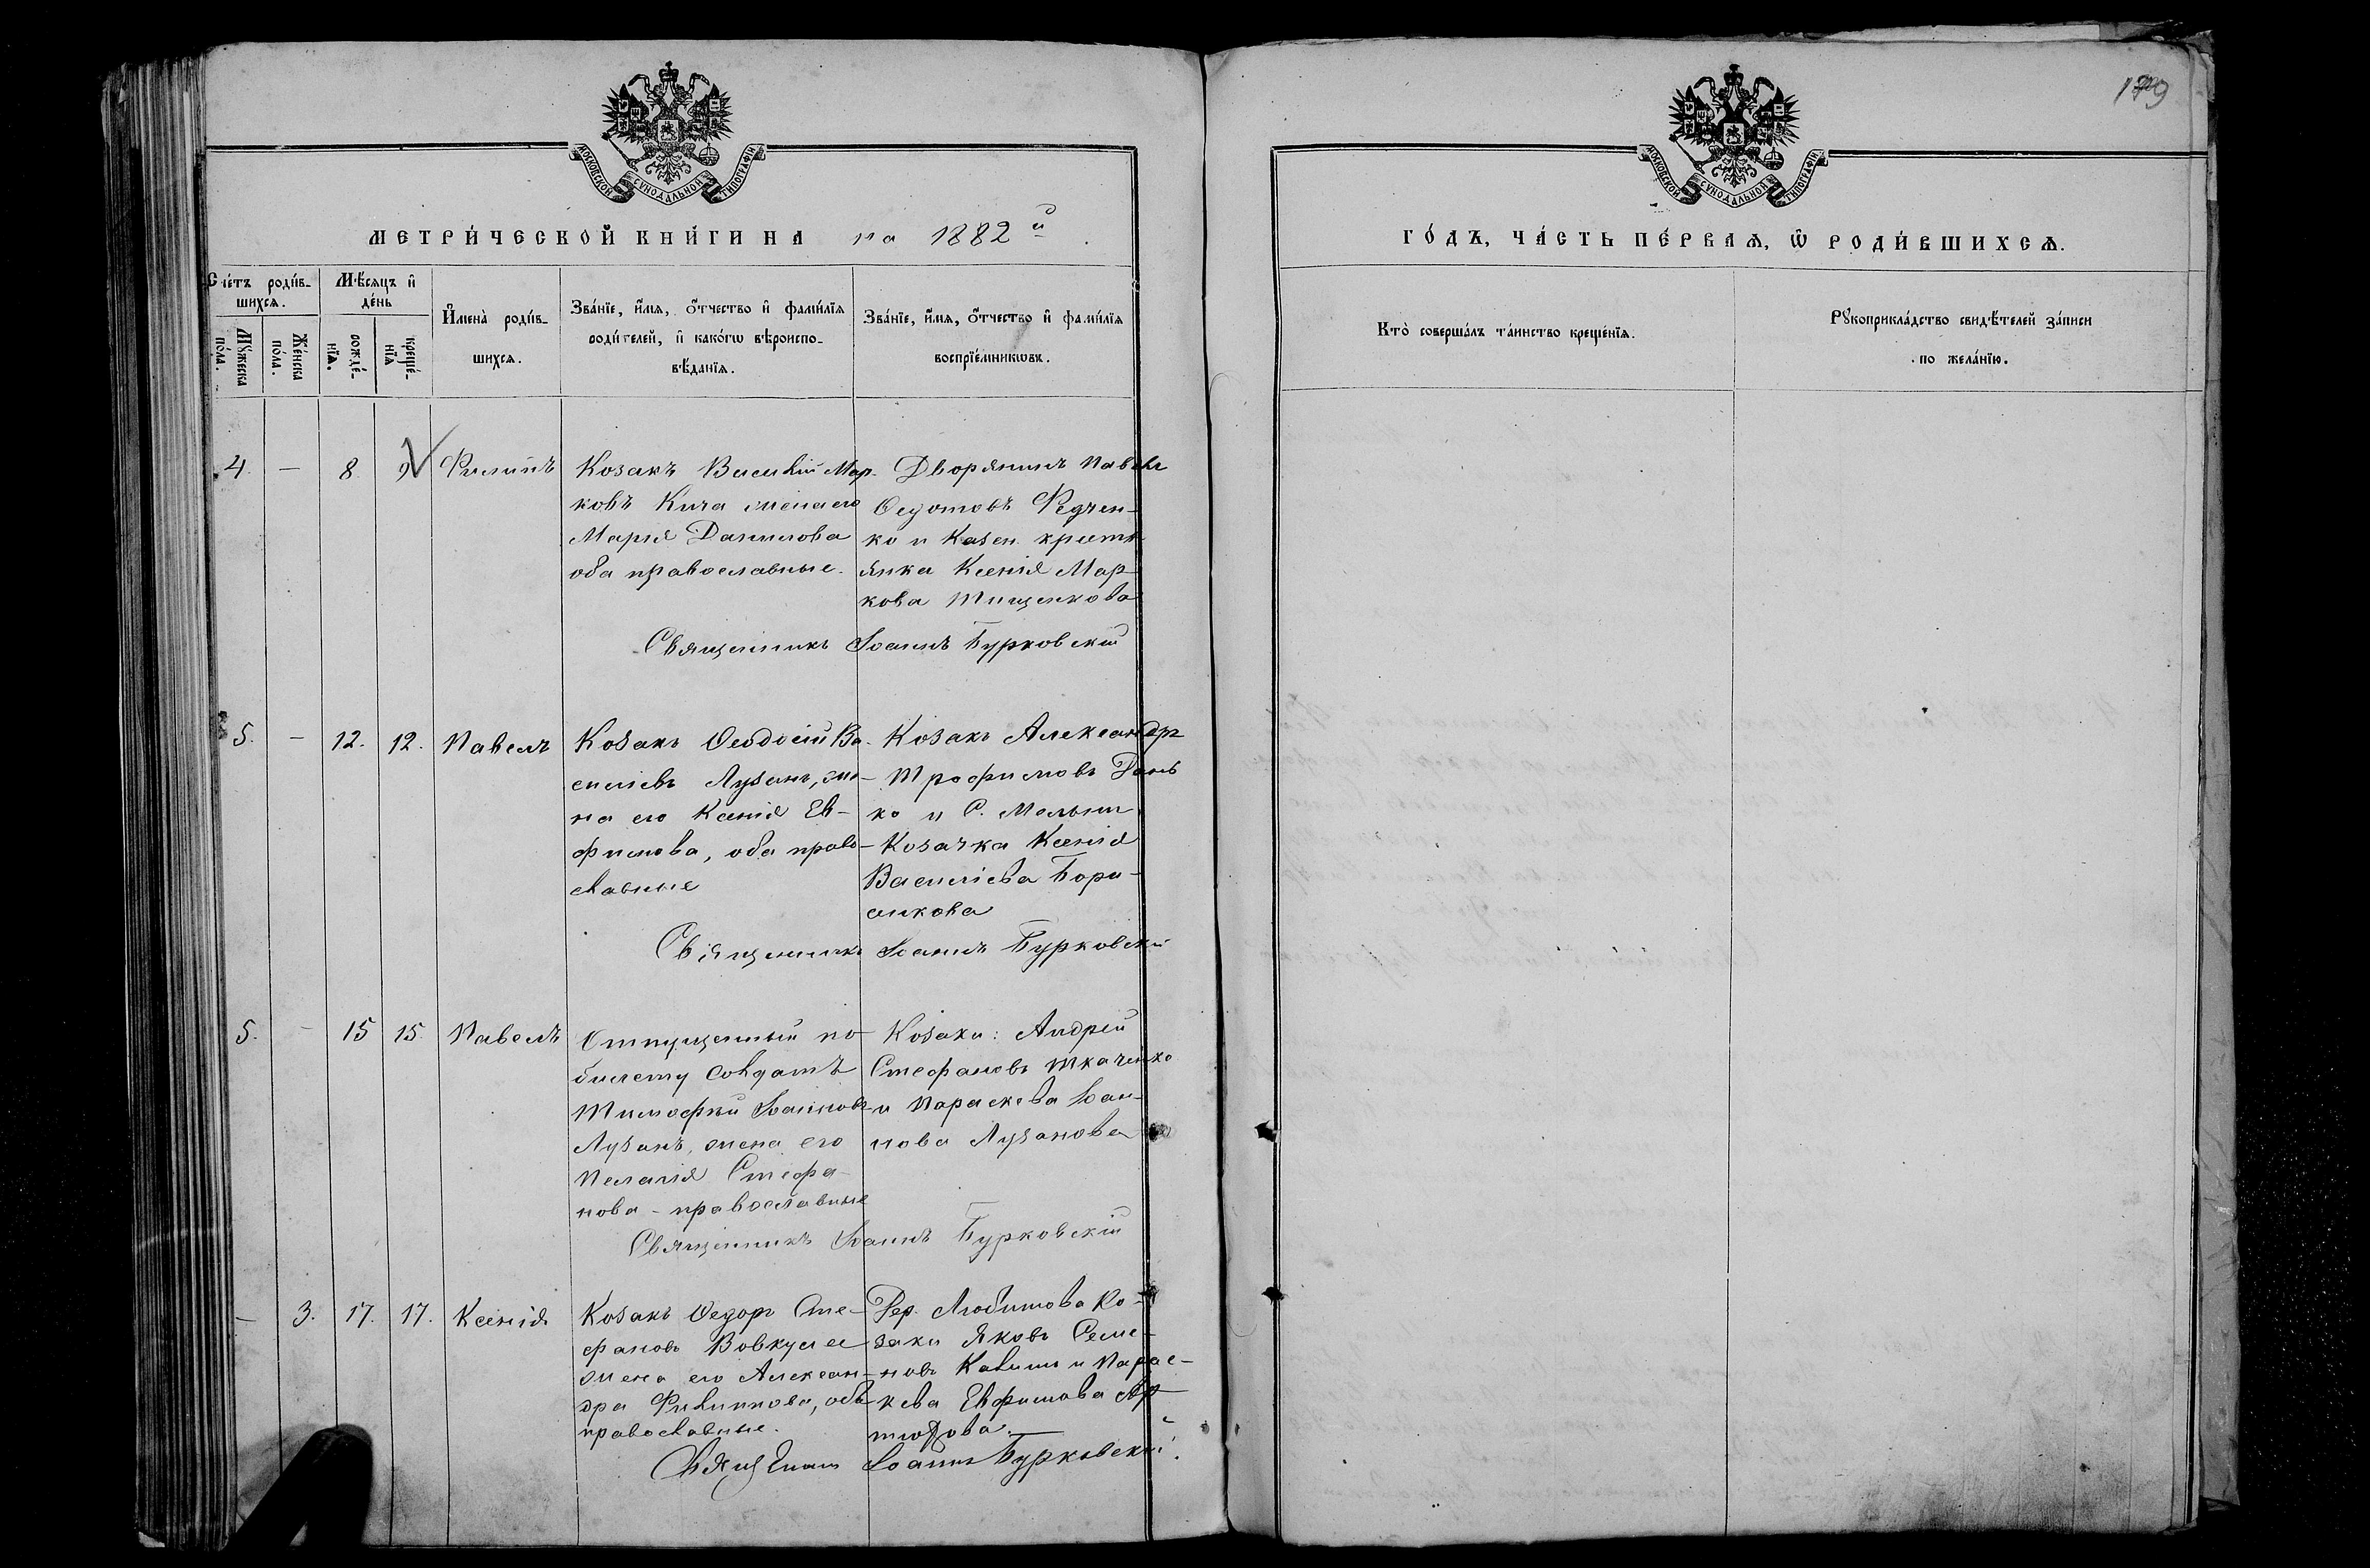 МОСКОВСКОЙ СѴНОДАЛЬНОЙ ТИПОГРАФІИ
МОСКОВСКОЙ СѴНОДАЛЬНОЙ ТИПОГРАФІИ
МЕТРИ́ЧЕСКОЙ КНИ́ГИ НА на 1882 й
ГО́ДЪ, ЧА́СТЬ ПЕ́РВАѦ, Ѿ РОДИ́ВШИХСѦ.
Сче́тъ роди́в-
шихсѧ.
Мꙋ́жеска по́ла.
Же́нска по́ла.
Мѣ́сѧцъ и де́нь
рожде́-
нїѧ.
креще́-
нїѧ
И҆мена̀ роди́в-
шихсѧ.
Зва́нїе, и҆́мѧ, ѻ҆́тчество и҆ фами́лїѧ
роди́телей, и҆ како́гѡ вѣроиспо-
вѣ́данїѧ.
Зва́нїе, и҆́мѧ, ѻ҆́тчество и҆ фами́лїѧ
воспрїе́мникѡвъ.
Кто̀ соверша́лъ та́инство креще́нїѧ.
Рꙋкоприкла́дство свидѣ́телей за́писи
по жела́нїю.
4. — 8 9 Филипъ
Козакъ Василій Мар-
ковъ Кича жена его
Марія Данилова
оба православные.
Дворянинъ Павелъ
Ѳедотовъ Федчен-
ко и Казен. кресть
янка Ксенія Мар-
кова Тищенкова
Священникъ Іоаннъ Бурковскій
5. — 12. 12. Павелъ
Козакъ Ѳеодосій Ва-
силіевъ Лузанъ, же-
на его Ксенія Ев-
фимова, оба право-
славные
Козакъ Александръ
Трофимовъ Дань
ко и С.
Козачка Ксенія
Василіева Бори-
сикова
Священникъ Іоаннъ Бурковскій
5. — 15 15. Павелъ
Отпущенный по
билету солдатъ
Тимофей Іоанновъ
Лузанъ, жена его
Пелагія Стефа-
нова - православные
Козаки: Андрей
Стефановъ Ткаченко
и Параскева Іоан-
нова Лузанова
Священникъ Іоаннъ Бурковскій
— 3. 17. 17. Ксенія
Козакъ Ѳедоръ Сте-
фановъ
жена его Алексан-
дра Филиппова, оба
православные.
Дер. Любимова Ко-
заки Яковъ Семе-
новъ и Парас-
кева Евфимова Ар-
тюхова.
Священникъ Іоаннъ Бурковскій.